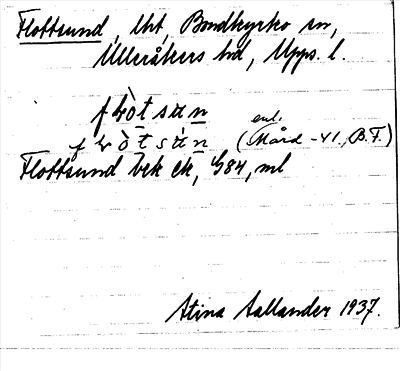 Flottsund, lht, Bondkyrko sn,
Ulleråkers hd, Upps. l.
flòt sun
enl.
flòt sùn (Mård -41, B.F.)
Flottsund bek ek, G84, ml
Stina Sallander 1937.